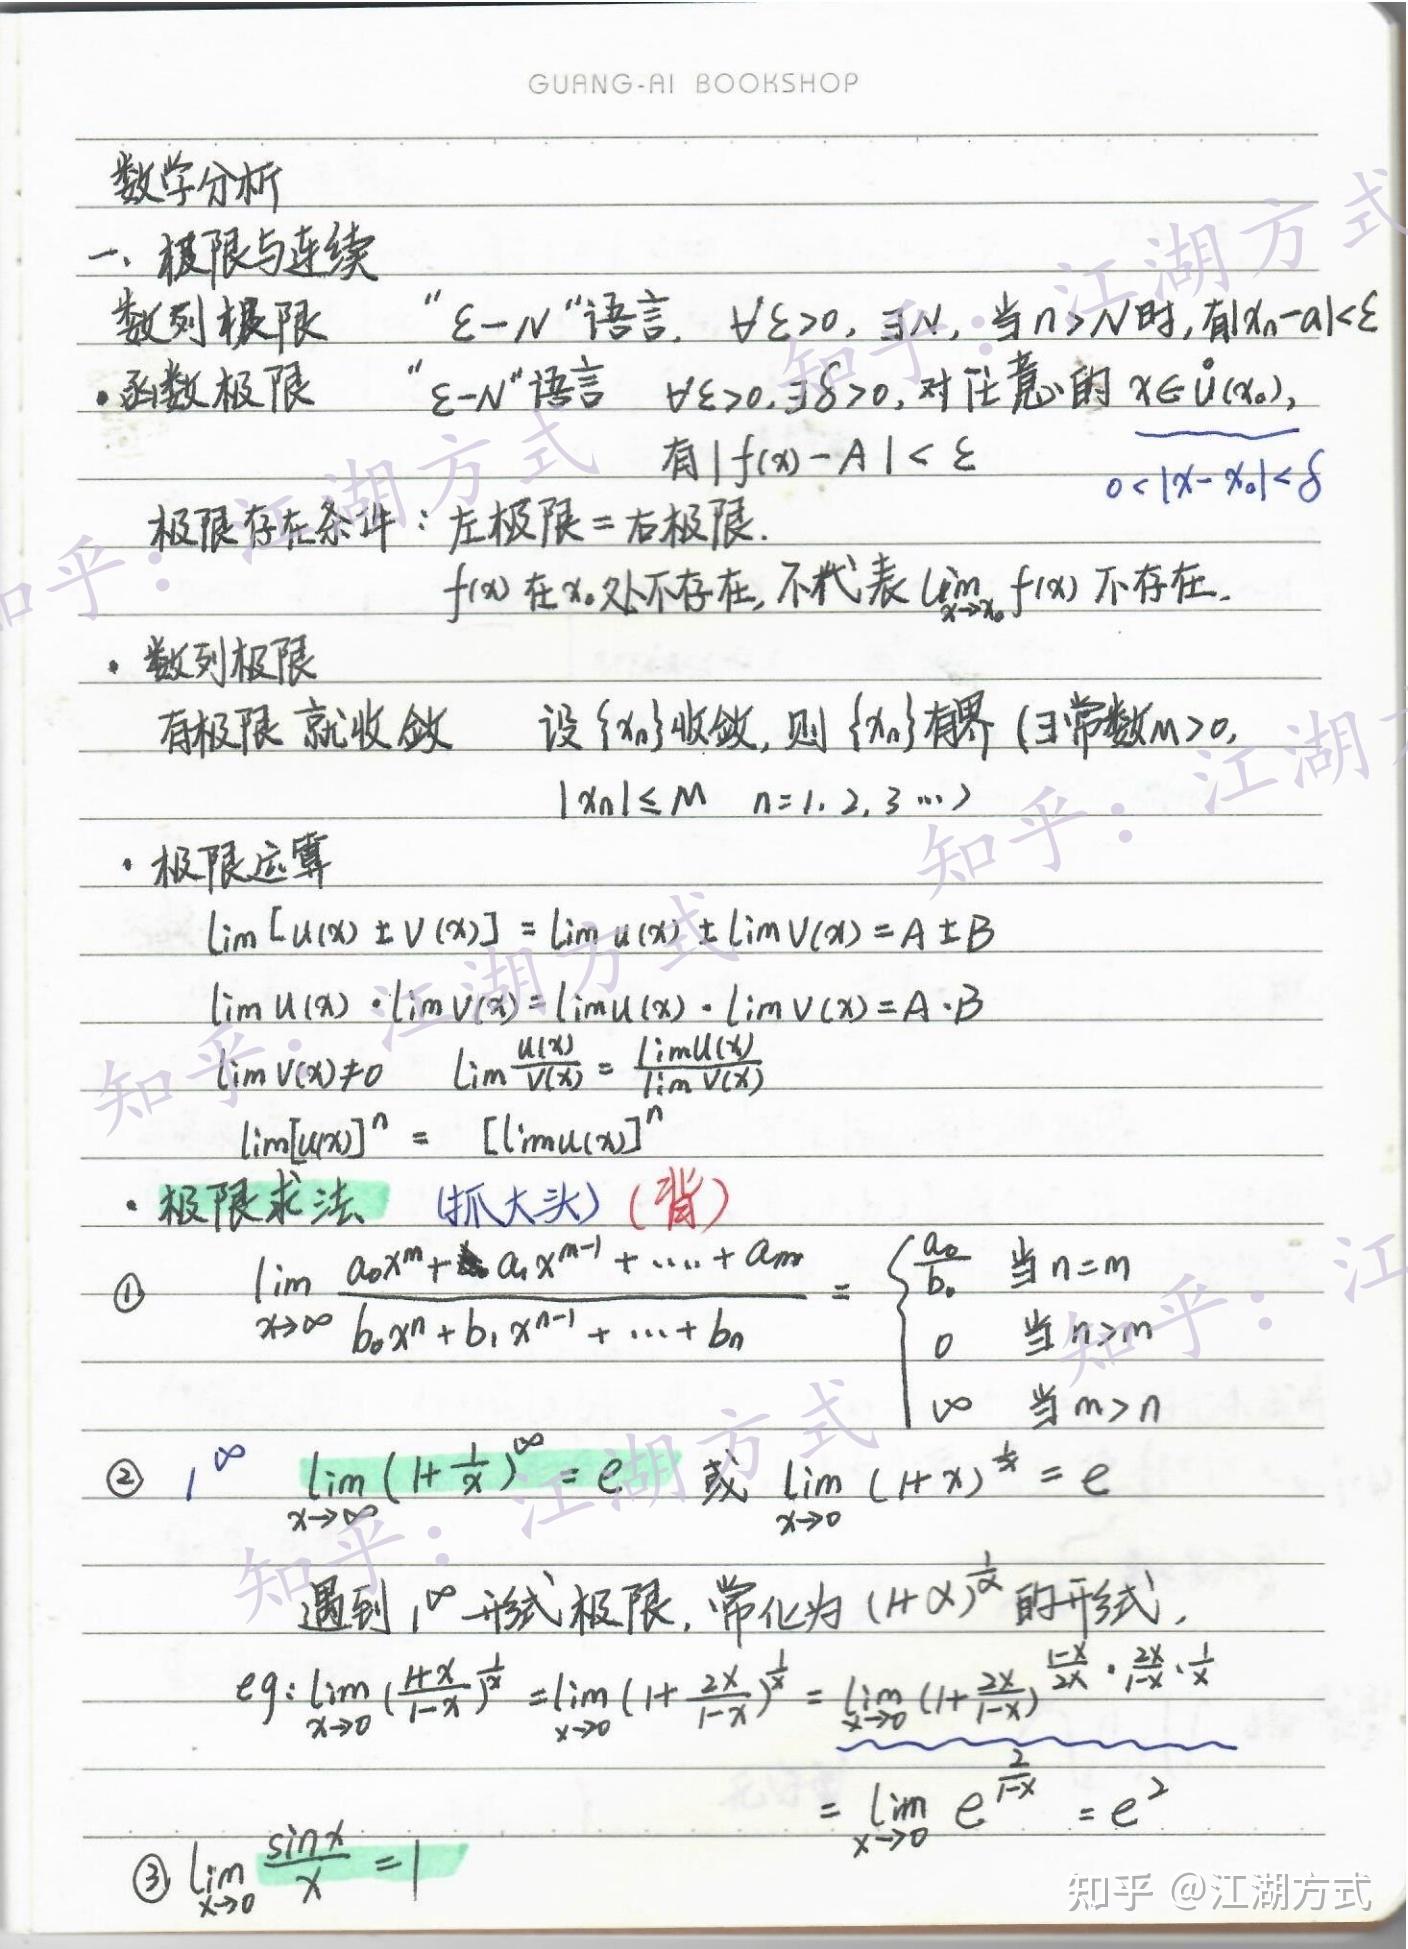 GUANG-AI BOOKSHOP
数学分析
一、极限与连续
数列极限 “ε-N”语言. ∀ε>0, ∃N, 当n>N时, 有|xₙ-a|<ε
·函数极限 “ε-N”语言 ∀ε>0, ∃δ>0, 对任意的 x∈Ů(x₀),
有|f(x)-A|<ε
0<|x-x₀|<δ
极限存在条件:左极限=右极限.
f(x)在x₀处不存在, 不代表 lim_{x→x₀} f(x) 不存在.
·数列极限
有极限就收敛 设{xₙ}收敛, 则{xₙ}有界 (∃常数M>0,
|xₙ|≤M n=1,2,3…)
·极限运算
lim[u(x)±v(x)]=lim u(x)±lim v(x)=A±B
lim u(x)·lim v(x)=lim u(x)·lim v(x)=A·B
lim v(x)≠0 lim u(x)/v(x) = lim u(x)/lim v(x)
lim[u(x)]ⁿ = [lim u(x)]ⁿ
·极限求法 (抓大头) (背)
① lim_{x→∞} (a₀x^m+a₁x^{m-1}+....+a_m)/(b₀x^n+b₁x^{n-1}+...+b_n) = { a₀/b₀ 当n=m
0 当n>m
∞ 当m>n
② 1^∞ lim_{x→∞} (1+1/x)^∞ = e 或 lim_{x→0} (1+x)^{1/x} = e
遇到1^∞形式极限, 常化为(1+α)^{1/α}的形式.
eg: lim_{x→0} ((1+x)/(1-x))^{1/x} = lim_{x→0} (1+2x/(1-x))^{1/x} = lim_{x→0} (1+2x/(1-x))^{(1-x)/2x · 2x/(1-x) · 1/x}
= lim_{x→0} e^{2/(1-x)} = e²
③ lim_{x→0} sinx/x = 1
知乎 @江湖方式
知乎：江湖方式